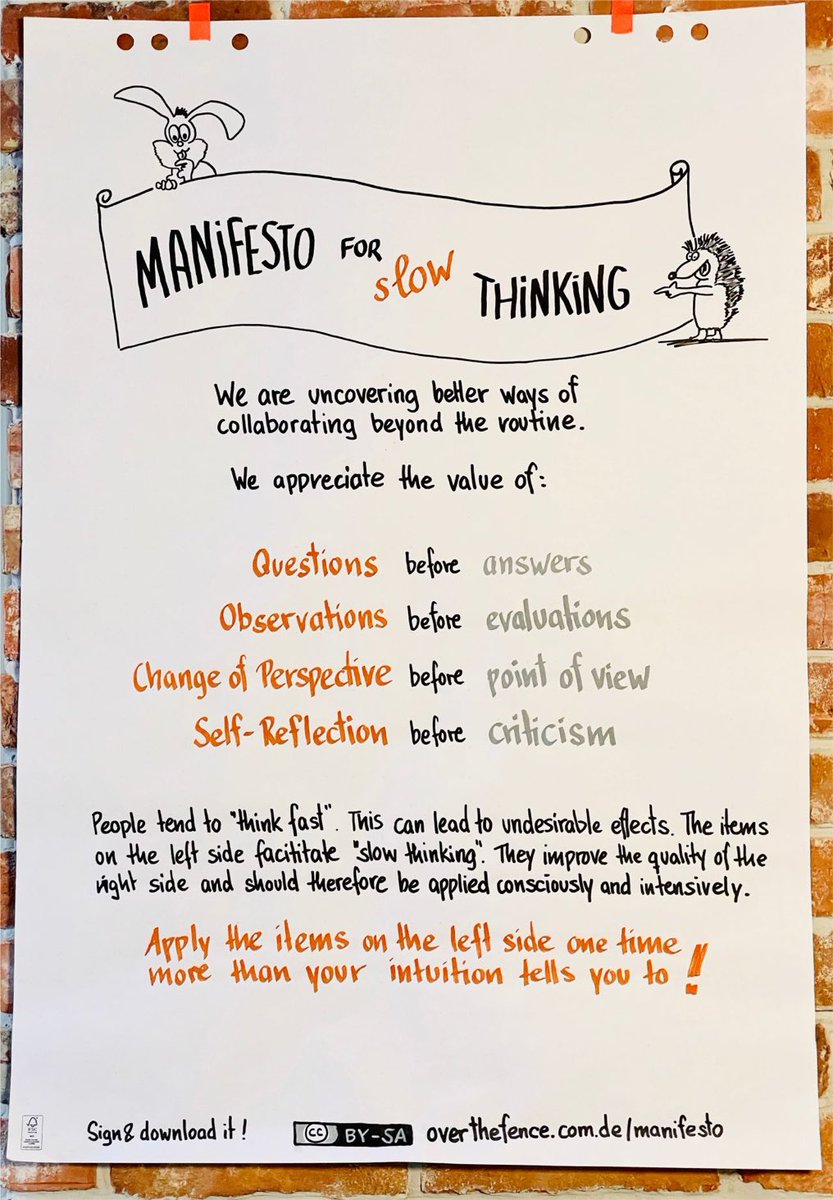 MANiFESTO FOR slow THiNKiNG
We are uncovering better ways of
collaborating beyond the routine.
We appreciate the value of:
Questions before answers
Observations before evaluations
Change of Perspective before point of view
Self-Reflection before criticism
People tend to "think fast". This can lead to undesirable effects. The items
on the left side facititate "slow thinking". They improve the quality of the
right side and should therefore be applied consciously and intensively.
Apply the items on the left side one time
more than your intuition tells you to!
Sign & download it! cc BY-SA overthefence.com.de/manifesto
FSC